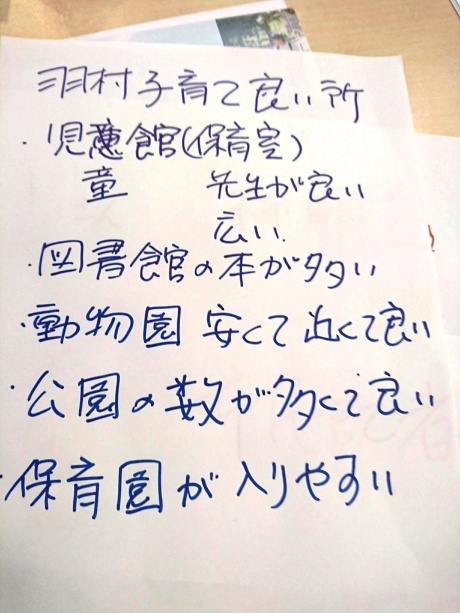 羽村子育て良い所
・児童館(保育室)
童 先生が良い
広い.
・図書館の本が多い
・動物園 安くて近くて良い
・公園の数が多くて良い
・保育園が入りやすい